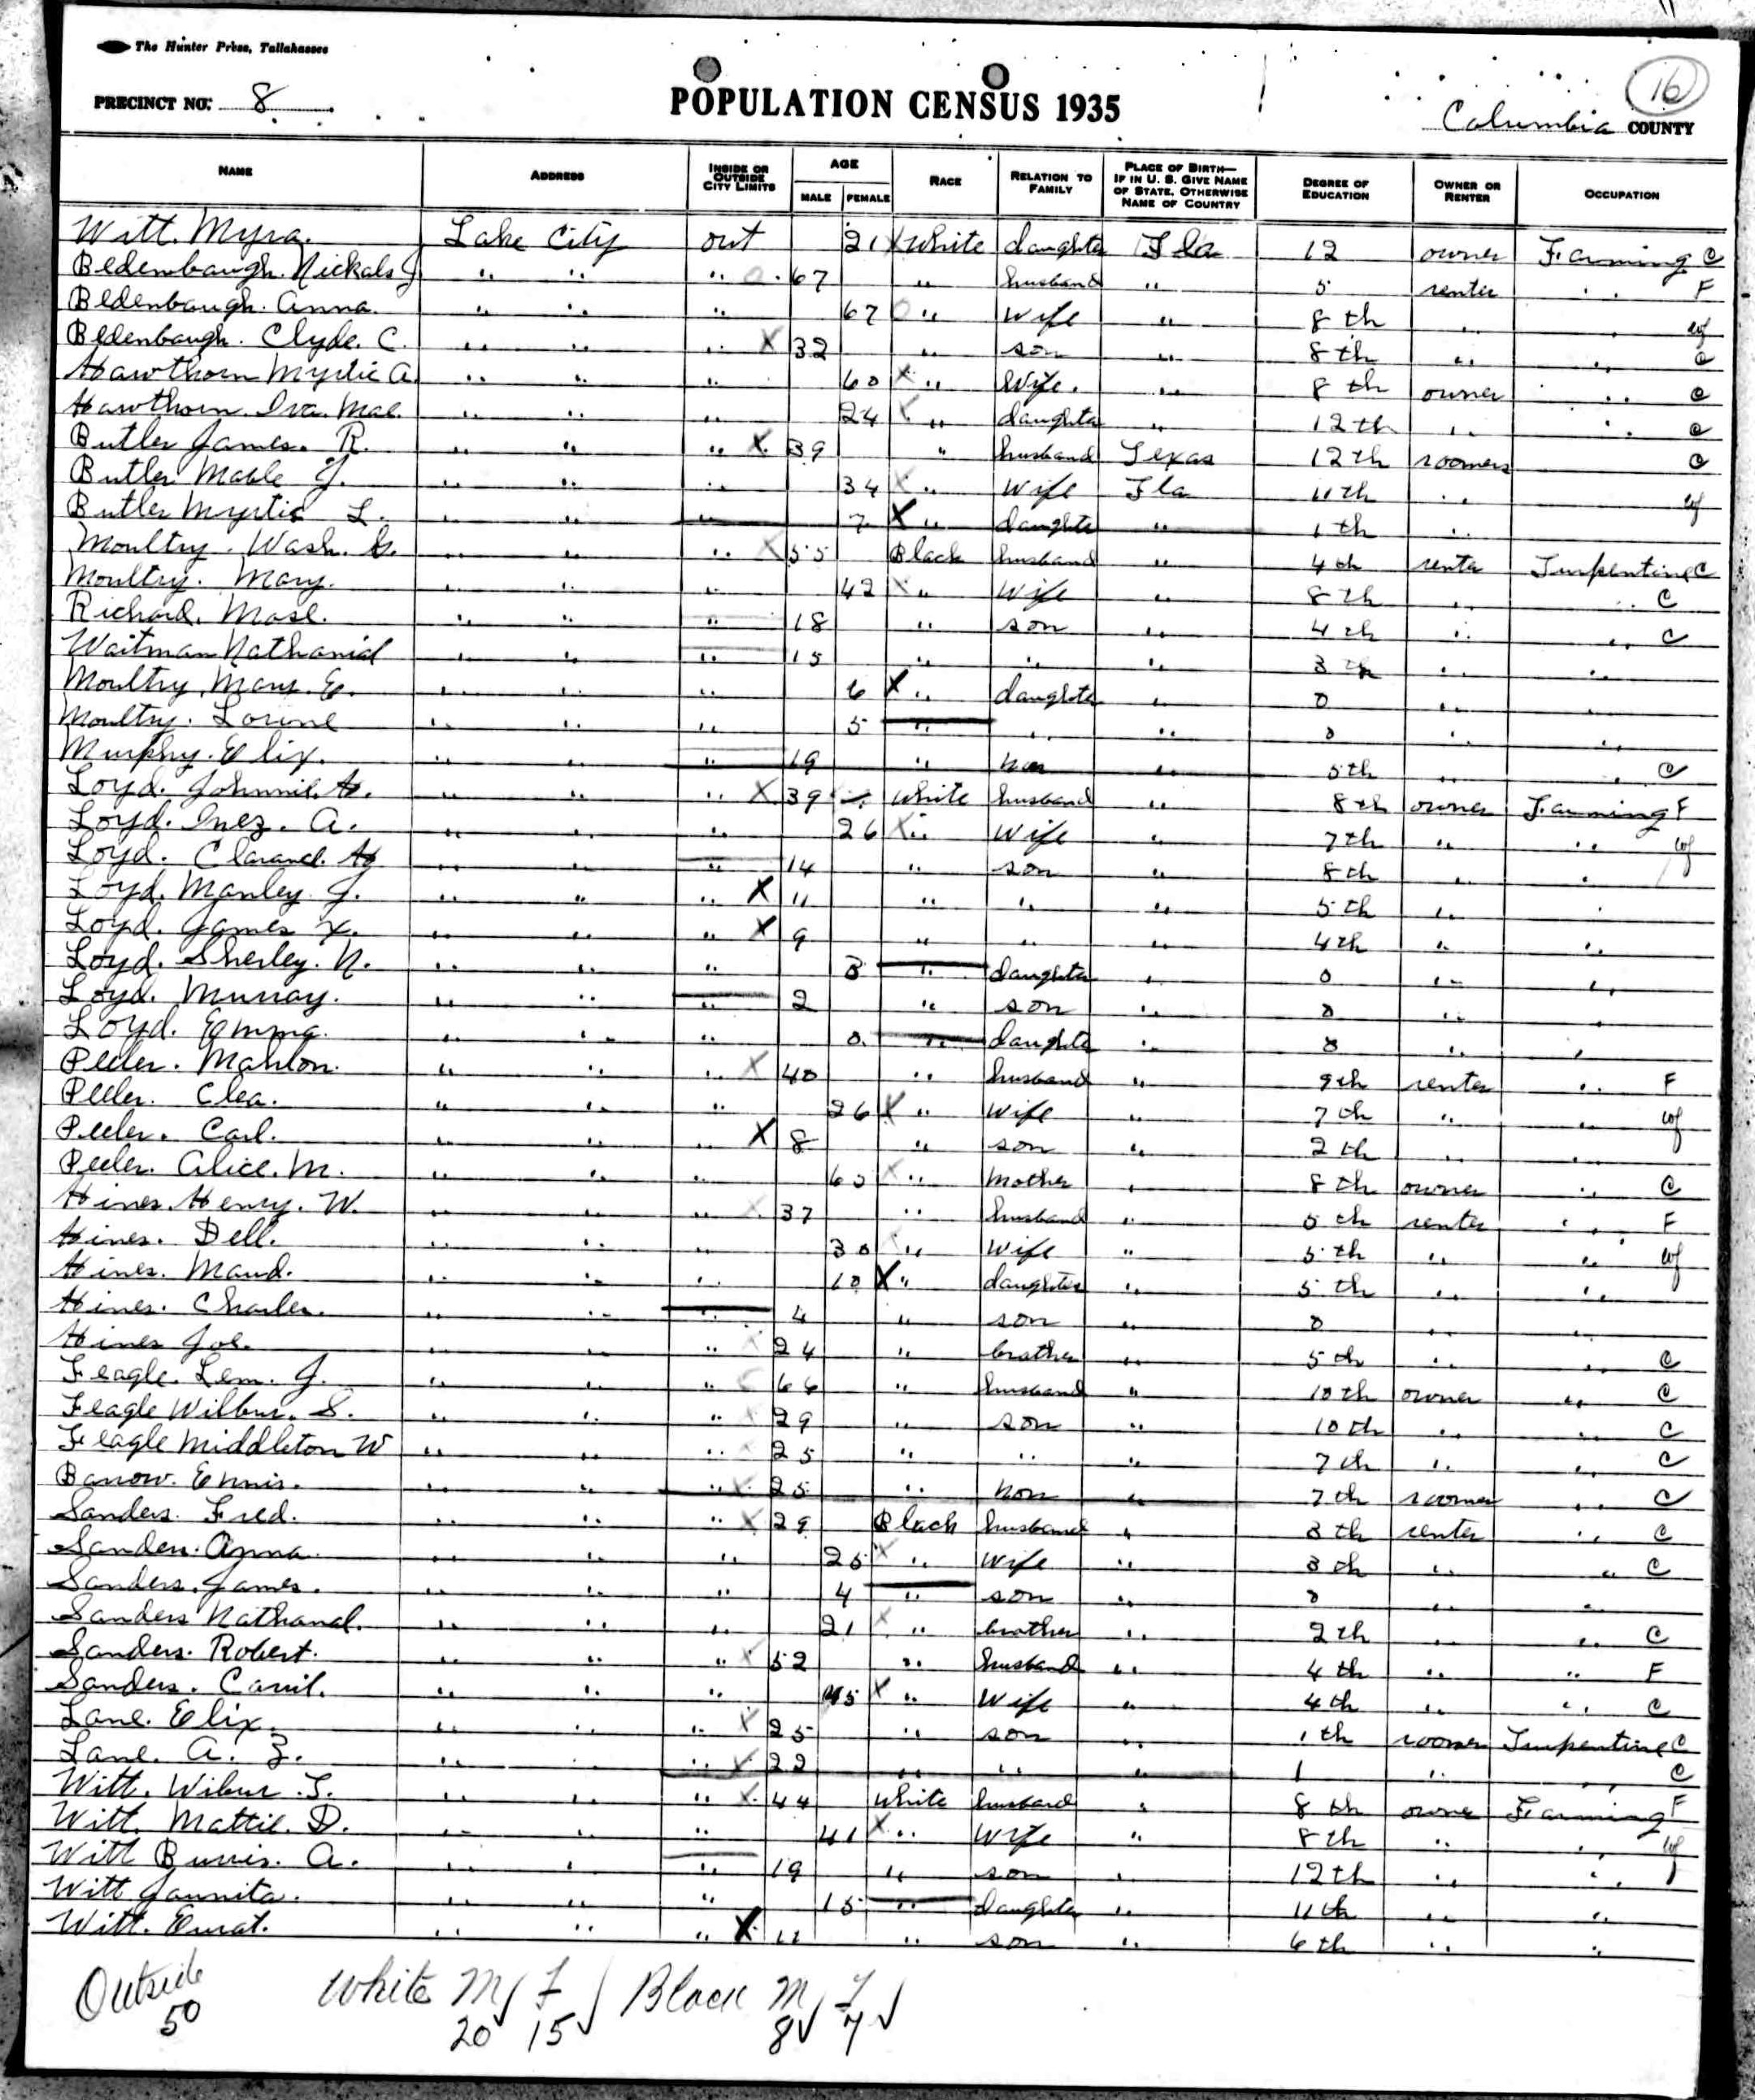 The Hunter Press, Tallahassee
16
PRECINCT NO. 8 POPULATION CENSUS 1935 Columbia COUNTY
NAME ADDRESS INSIDE OR OUTSIDE CITY LIMITS AGE MALE FEMALE RACE RELATION TO FAMILY PLACE OF BIRTH—IF IN U. S. GIVE NAME OF STATE, OTHERWISE NAME OF COUNTRY DEGREE OF EDUCATION OWNER OR RENTER OCCUPATION
Witt. Myra. Lake City out 21 X White daughter Fla 12 owner Farming C
Bedenbaugh. Nickals J " " " 67 " husband " 5 renter " F
Bedenbaugh. Anna. " " " 67 " wife " 8th " " wf
Bedenbaugh. Clyde. C. " " " X 32 " son " 8th " " C
Hawthorn Myrtie A. " " " 60 X " Wife. " 8th owner " C
Hawthorn. Iva. Mae. " " " 24 X " daughter " 12th " " C
Butler James. R. " " " X 39 " husband Texas 12th roomers C
Butler Mable J. " " " 34 X " Wife Fla 11th " wf
Butler Myrtis L. " " " 7 X " daughter " 1th "
Moultry. Wash. G. " " " X 55 Black husband " 4th renter Turpentine C
Moultry. Mary. " " " 42 X " Wife " 8th " " C
Richard. Mose. " " " 18 " son " 4th " " C
Waitman Nathanial " " " 15 " " " 3th " "
Moultry, Mary. E. " " " 6 X " daughter " 0 " "
Moultry. Lorine " " " 5 " " " 0 " "
Murphy. Elix. " " " 19 " non " 5th " " C
Loyd. Johnnie. H. " " " X 39 White husband " 8th owner Farming F
Loyd. Inez. A. " " " 26 X " Wife " 7th " " wf
Loyd. Clarance. H " " " 14 " son " 8th " "
Loyd. Manley. J. " " " X 11 " " " 5th " "
Loyd. James " " " X 9 " " " 4th " "
Loyd. Sherley. N. " " " 3 " daughter " 0 " "
Loyd. Murray. " " " 2 " son " 0 " "
Loyd. Emma. " " " 0 " daughter " 0 " "
Peeler. Mahlon. " " " X 40 " husband " 9th renter " F
Peeler. Clea. " " " 26 X " Wife " 7th " " wf
Peeler. Carl. " " " X 8 " son " 2th " "
Peeler. Alice. M. " " " X " Mother " 8th owner " C
Hines. Henry. W. " " " X 37 " husband " 5th renter " F
Hines. Dell. " " " 30 " Wife " 5th " " wf
Hines. Maud. " " " 10 X " daughter " 5th " "
Hines. Charles. " " " 4 " son " 0 " "
Hines Joe. " " " 24 " brother " 5th " " C
Feagle. Lem. J. " " " 66 " husband " 10th owner " C
Feagle Wilbur. S. " " " 29 " son " 10th " " C
Feagle Middleton W " " " 25 " " " 7th " " C
Barrow. Ennis. " " " X 25 " non " 7th roomer " C
Sanders. Fred. " " " X 29 Black husband " 3th renter " C
Sanders. Anna. " " " 25 X " Wife " 3th " " C
Sanders. James. " " " 4 " son " 0 " "
Sanders Nathanal. " " " 21 X " brother " 2th " " C
Sanders. Robert. " " " X 52 " husband " 4th " " F
Sanders. " " " 45 X " Wife " 4th " " C
Lane. Elix. " " " X 25 " son " 1th roomer Turpentine C
Lane. A. Z. " " " X 22 " " " 1 " " C
Witt. Wilbur. " " " X 44 White husband " 8th owner Farming F
Witt. Mattie. D. " " " 41 X " Wife " 8th " " wf
Witt Burris. A. " " " 19 " son " 12th " "
Witt Jaunita. " " " 15 " daughter " 11th " "
Witt. " " " X 11 " son " 6th " "
Outside White M F Black M F
50 20 15 8 7